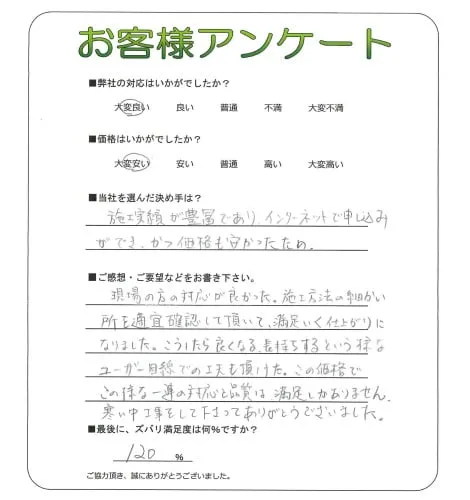 お客様アンケート
■弊社の対応はいかがでしたか？
大変良い 良い 普通 不満 大変不満
■価格はいかがでしたか？
大変安い 安い 普通 高い 大変高い
■当社を選んだ決め手は？
施工実績が豊富であり、インターネットで申込み
ができ、かつ価格も安かったため。
■ご感想・ご要望などをお書き下さい。
現場の方の対応が良かった。施工方法の細かい
所を適宜確認して頂いて、満足いく仕上がりに
なりました。こうしたら良くなる、長持ちするという様な
ユーザー目線での工夫も頂けた。この価格で
この様な一連の対応と品質は、満足しかありません。
寒い中工事をして下さってありがとうございました。
■最後に、ズバリ満足度は何%ですか？
120 %
ご協力頂き、誠にありがとうございました。